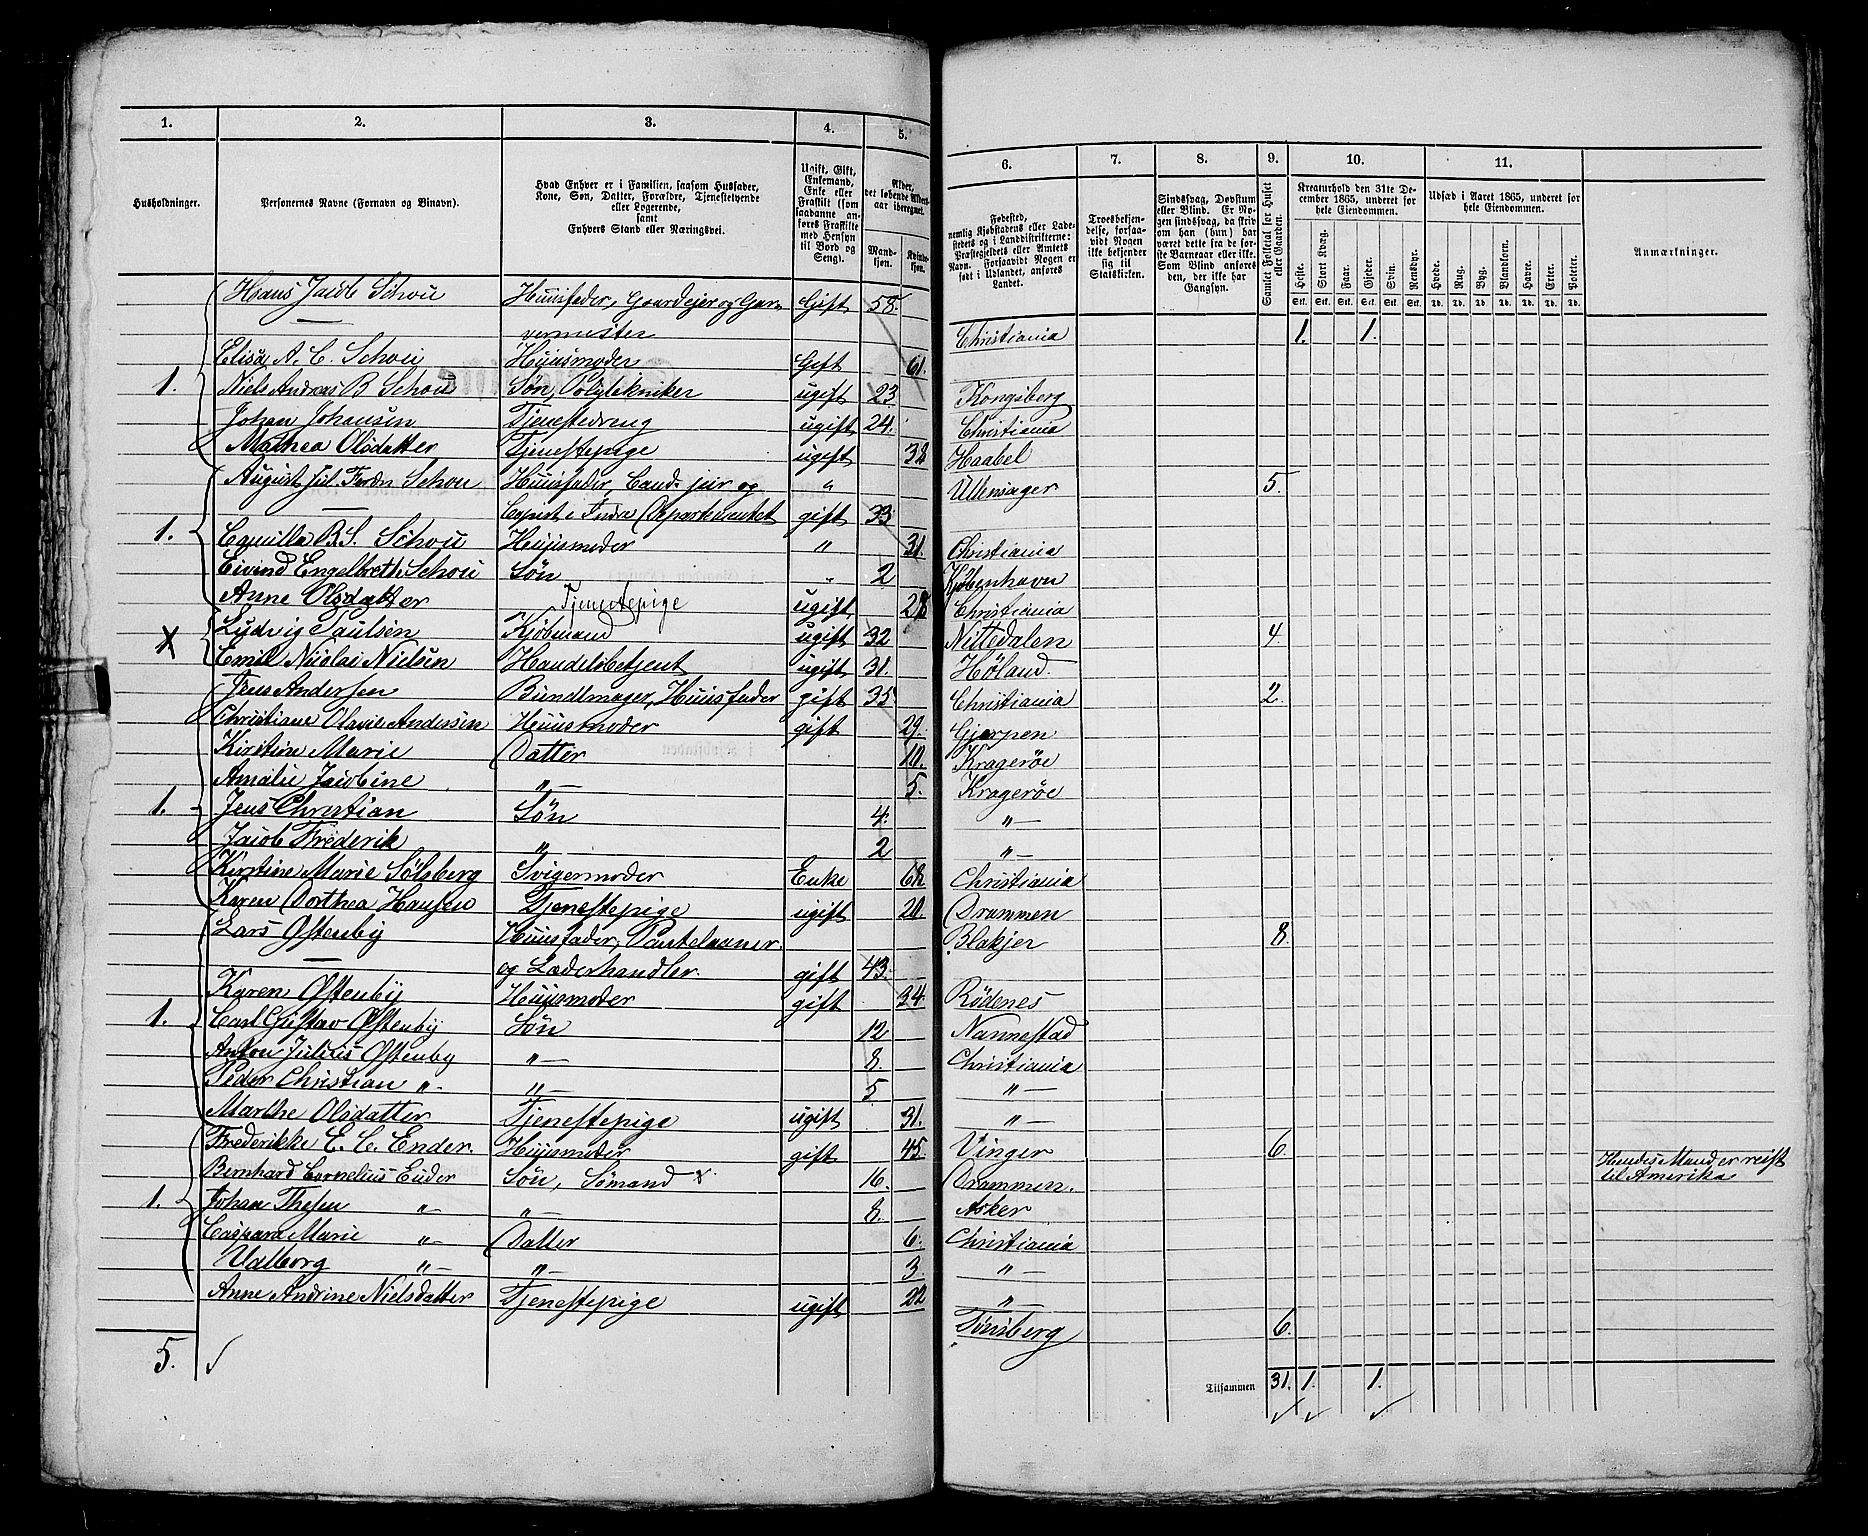 1. 2. 3. 4. 5.
Husholdninger.
Personernes Navne (Fornavn og Binavn).
Hvad Enhver er i Familien, saasom Husfader,
Kone, Søn, Datter, Forældre, Tjenestetyende
eller Logerende,
samt
Enhvers Stand eller Næringsvei.
Ugift, Gift,
Enkemand,
Enke eller
Fraskilt (som
saadanne an-
føres Fraskilte
med Hensyn
til Bord og
Seng).
Alder,
det løbende Alders-
aar iberegnet.
Mand-
kjøn.
Kvinde-
kjøn.
Hans Jacob Schou Huusfader, Gaardejer og Gar- Gift 58.
— vermester
Elisa A. C. Schou Huusmoder Gift 61.
1. Niels Andreas B Schou Søn, Polytekniker ugift 23
Johan Johansen Tjenestedreng ugift 24.
Mathea Olsdatter Tjenestepige ugift 32
August Jul. Ferdn Schou Huusfader, Cand. jur og "
— Copist i Indre Departementet gift 33
1. Camilla B.S. Schou Huusmoder " 31.
Eivind Engelbreth Schou Søn " 2
Anne Olsdatter Tjenestepige ugift 28
Ludvig Paulsen Kjøbmand ugift 32
X Emil Nicolai Nielsen Handelsbetjent ugift 31.
Jens Andersen Bundtmager, Huusfader gift 35
Christiane Olavie Andersen Huusmoder gift 29.
Kirstine Marie Datter 10.
Amalie Jacobine " — 5.
1. Jens Christian Søn 4.
Jacob Frederik " 2
Kirstine Marie Sølsberg Svigermoder Enke 68
Karen Dorthea Hansen Tjenestepige ugift 20.
Lars Østenby Huusfader,
— og Læderhandler. gift 43.
Karen Østenby Huusmoder gift 34
1. Carl Gustav Østenby Søn 12
Anton Julius Østenby " — 8.
Peder Christian " - " — 5
Marthe Olsdatter Tjenestepige ugift 31.
Frederikke E. C. Ender. Huusmoder gift 45
Bernhard Cornelius Ender Søn, Sømand x. 16.
1. Johan Thesen " - " — 8.
Caspara Marie " - Datter 6.
Valborg " - " — 3.
Anne Andrine Nielsdatter Tjenestepige ugift 22
5. ✓
6. 7. 8. 9. 10. 11.
Fødested,
nemlig Kjøbstadens eller Lade-
stedets og i Landdistrikterne:
Præstegjeldets eller Amtets
Navn. Forsaavidt Nogen er
født i Udlandet, anføres
Landet.
Troesbekjen-
delse, forsaa-
vidt Nogen
ikke bekjender
sig til
Statskirken.
Sindssvag, Døvstum
eller Blind. Er No-
gen sindssvag, da skriv
om han (hun) har
været dette fra de før-
ste Barneaar eller ikke.
Som Blind anføres
den, der ikke har
Gangsyn.
Samlet Folketal for Huset
eller Gaarden.
Kreaturhold den 31te De-
cember 1865, underet for
hele Eiendommen.
Heste. Stort Kvæg. Faar. Gjeder. Svin. Rensdyr.
Stk. Stk. Stk. Stk. Stk. Stk.
Udsæd i Aaret 1865, underet for
hele Eiendommen.
Hvede. Rug. Byg. Blandkorn. Havre. Erter. Poteter.
Td. Td. Td. Td. Td. Td. Td.
Anmærkninger.
Christiania 1. 1.
Kongsberg
Christiania
Haabel
Ullensager 5.
Christiania
Kjøbenhavn
Christiania
Nittedalen 4.
Høland.
Christiania 2.
Gjerpen
Kragerøe
Kragerøe
" —
" —
Christiania
Drammen
Blakjer 8.
Rødenes
Nannestad
Christiania
" —
" —
Vinger 6. Hendes Mand er reist
Drammen. til Amerika
Asker
Christiania
" —
" —
Tønsberg 6.
Tilsammen 31. 1. 1.
✓ ✓ ✓